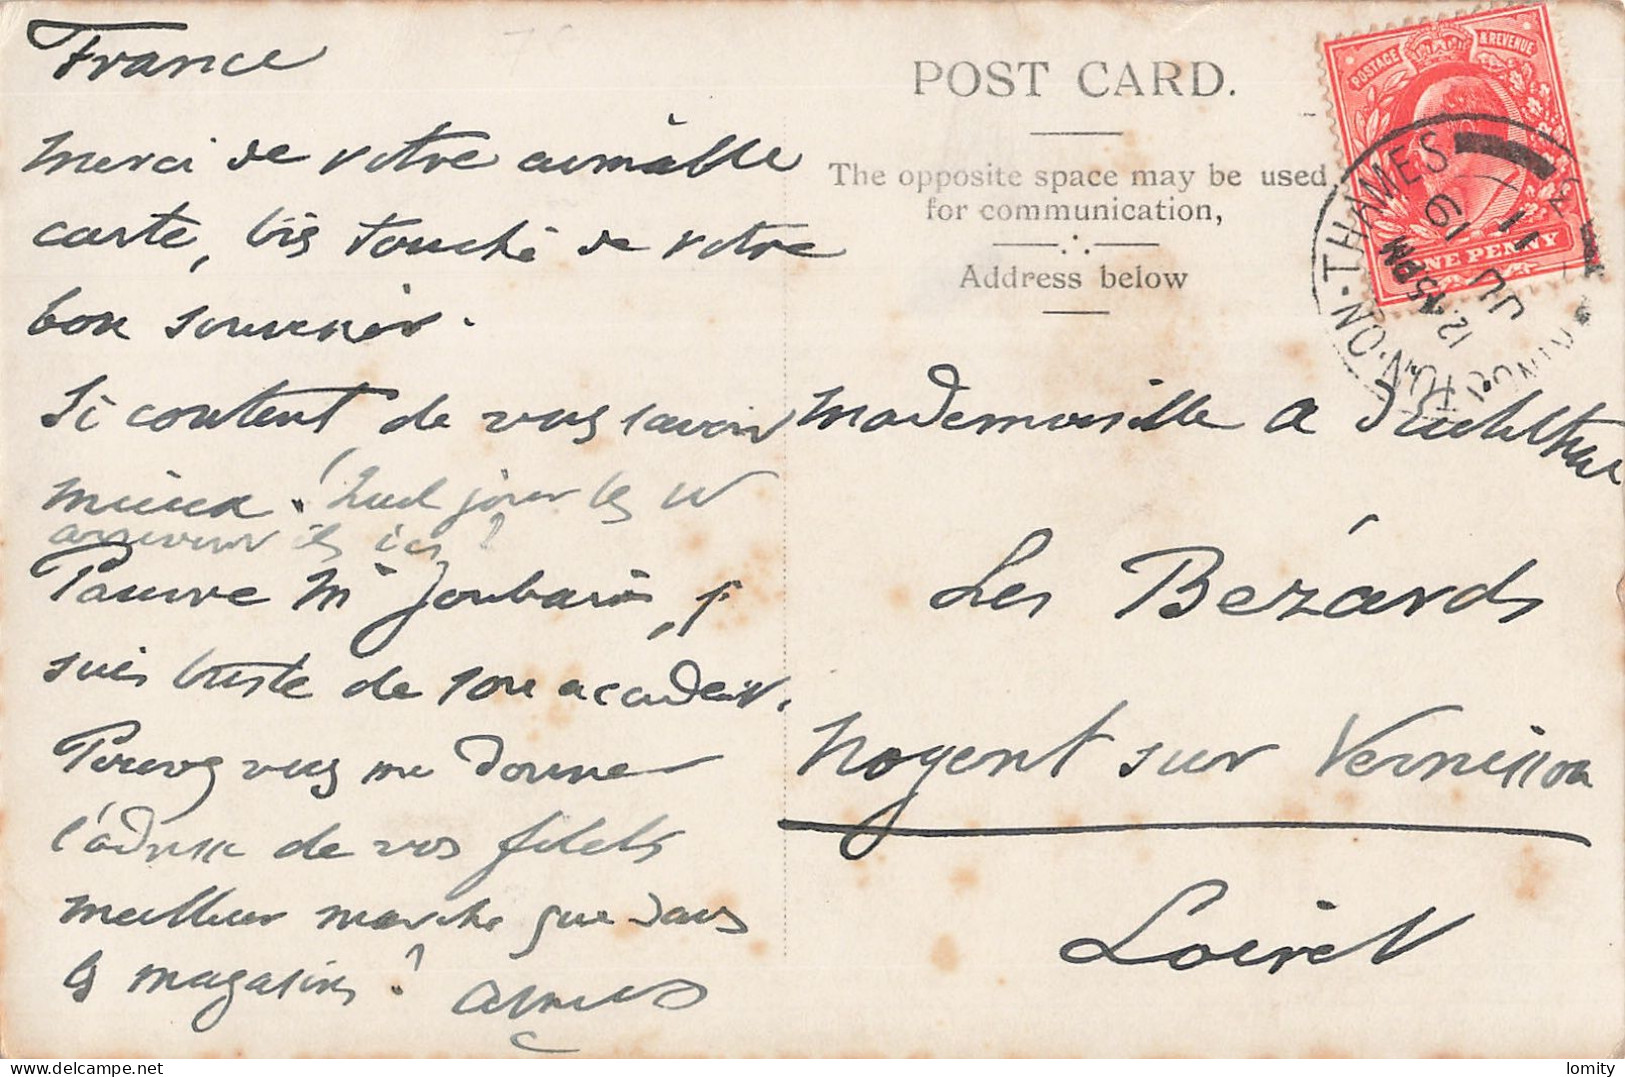 France
Merci de votre aimable
carte, très touché de votre
bon souvenir.
Si content de vous savoir
mieux. Quel jour les W
arrivent ils ici?
Pauvre Mr Joubain, je
suis triste de son accident.
Pouvez vous me donner
l'adresse de vos filets
meilleur marché que dans
les magasins?
POST CARD.
The opposite space may be used
for communication,
Address below
POSTAGE & REVENUE
ONE PENNY
KINGSTON·ON·THAMES
12.15PM
19 JU
11
Mademoiselle A
Les Bézards
Nogent sur Vernisson
Loiret
lomity